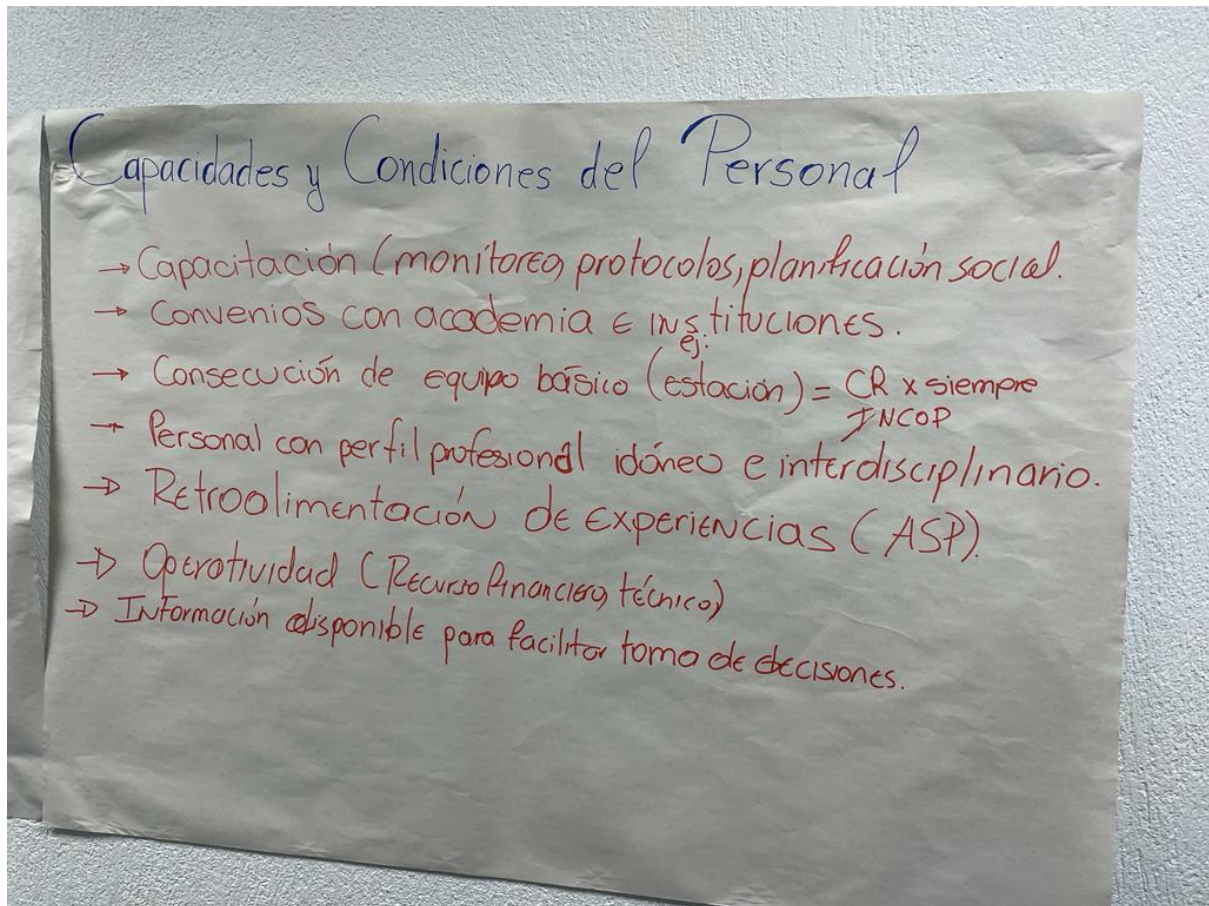 Capacidades y Condiciones del Personal
→ Capacitación (monitoreo, protocolos, planificación social.
→ Convenios con academia e instituciones.
ej:
→ Consecución de equipo básico (estación) = CR x siempre
INCOP
→ Personal con perfil profesional idóneo e interdisciplinario.
→ Retroalimentación de experiencias (ASP).
→ Operatividad (Recurso financiero, técnico)
→ Información disponible para facilitar toma de decisiones.